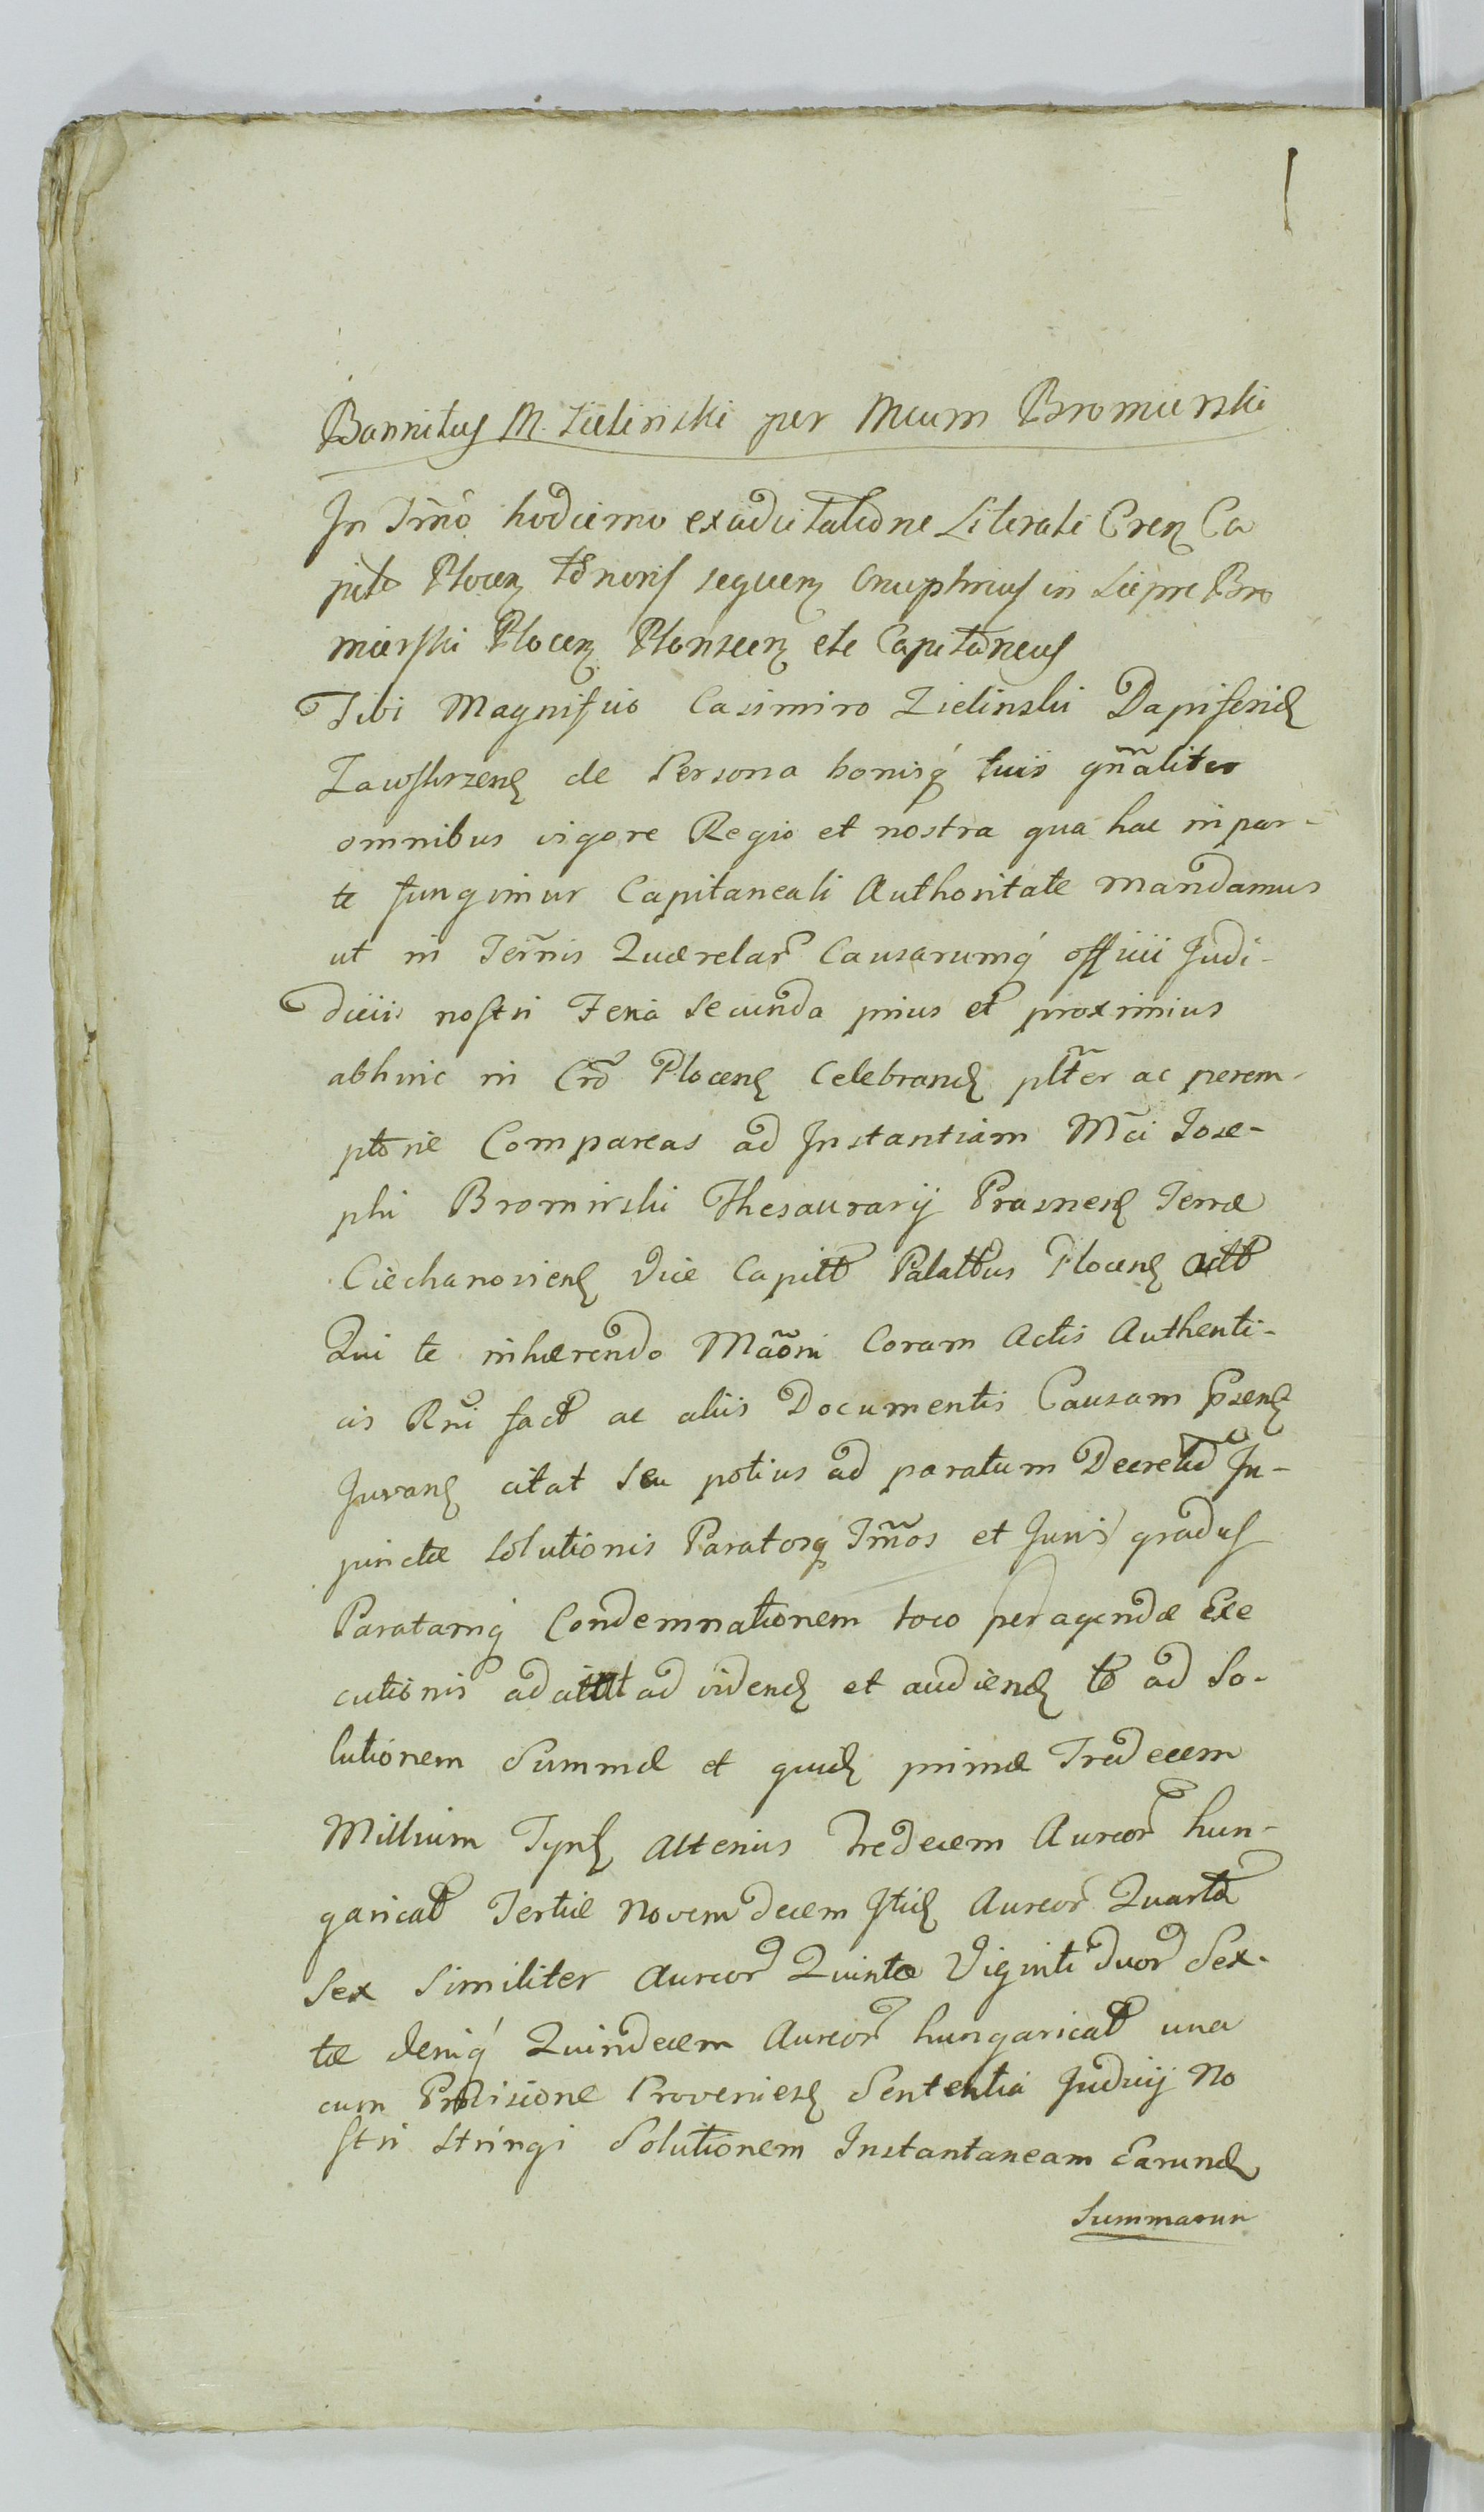 Bannitus M. Zielinski per Mcum Bromierski
In Tm̃o hodierno exadcitatione Literali Cren Ca
pite Plocen tenoris sequen Onuphrius in Liepre Bro
mierski Plocen Plonscen ete Capitaneus
Tibi Magnifuo Casimiro Zielinski Dapiferid
Zawskrzen de Persona bonisq́ tuis gñaliter
omnibus vigore Regio et nostra qua hac in par-
te fungimur Capitaneali Authoritate mandamus
ut in Ter̃nis Querelar Causarumq́ offiiii Judi-
diciis nostri Feria Secunda prius et proximius
abhinc in Crõ Plocen Celebrand pltẽr ac perem-
ptorie Compareas ad Instantiam Mc̃i Jose-
phi Bromirski Thesaurarij Prasnesń Terræ
Ciechanovien Vice Capitt Palattus Plocen Actt
Qui te inhærendo Maõni Coram Actis Authenti-
cis Rñi fact ac aliis Documentis Causam Pzen
Juvan citat seu potius ad paratum Decretũ In-
junctæ Solutionis Paratosq Tm̃os et Juris gradus
Paratamq Condemnationem loco peragendæ Exe
cutionis ad ad vidend et audiend te ad So-
lutionem Summæ et quid primæ Tredecem
Millium Tynf Alterius Tredecem Aureor hun-
garicat Tertiæ Novem decem Itid Aureor Quartæ
Sex Similiter Aureor Quintæ Viginti duor Sex-
tæ deniq́ Quindecem Aureor hungaricat una
cum Provisione Provenień Sententia Judicij No
stri stringi Solutionem Instantaneam Earund
Summarum